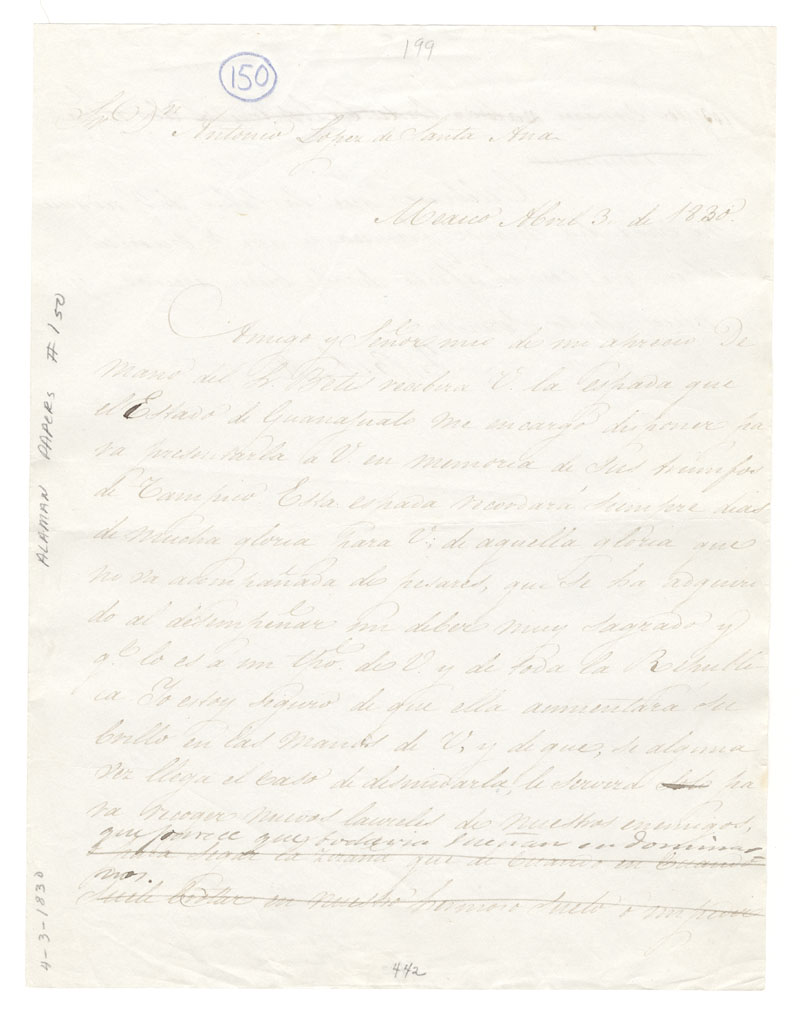 199
150
Sr. Dn.
Antonio Lopez de Santa Ana
Mexico Abril 3. de 1830.
Amigo y Señor mio de mi aprecio De
mano del S. Betes recibira V. la espada que
el Estado de Guanajuato me encargó disponer pa-
ra presentarla á V. en memoria de sus triunfos
de Tampico Esta espada recordará siempre dias
de mucha gloria para V.; de aquella gloria que
no va acompañada de pesares, que se ha adquiri-
do al desempeñar un deber muy sagrado y
qe. lo es a un tpo. de V. y de toda la Republi-
ca Yo estoy seguro de que ella aumentara su
brillo en las manos de V, y de que, si alguna
vez llega el caso de desnudarla, le servira solo pa-
ra recoger nuevos laureles de nuestros enemigos,
que parece que todavia sueñan en domina-
para segar la zizaña que de cuando en cuando
nos.
suele brotar en nuestro hermoso suelo ó
442
ALAMAN PAPERS # 150
4-3-1830